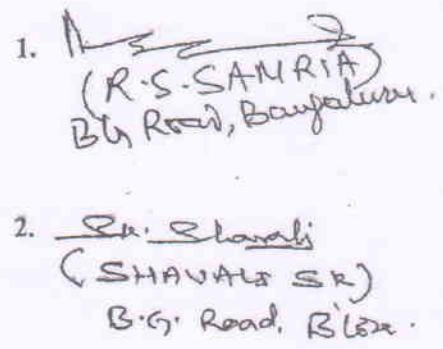 1.
(R.S. SAMRIA)
BG Road, Bangaluru.
2. SK. Shavali
(SHAVALI SK)
B.G. Road, B'lore.